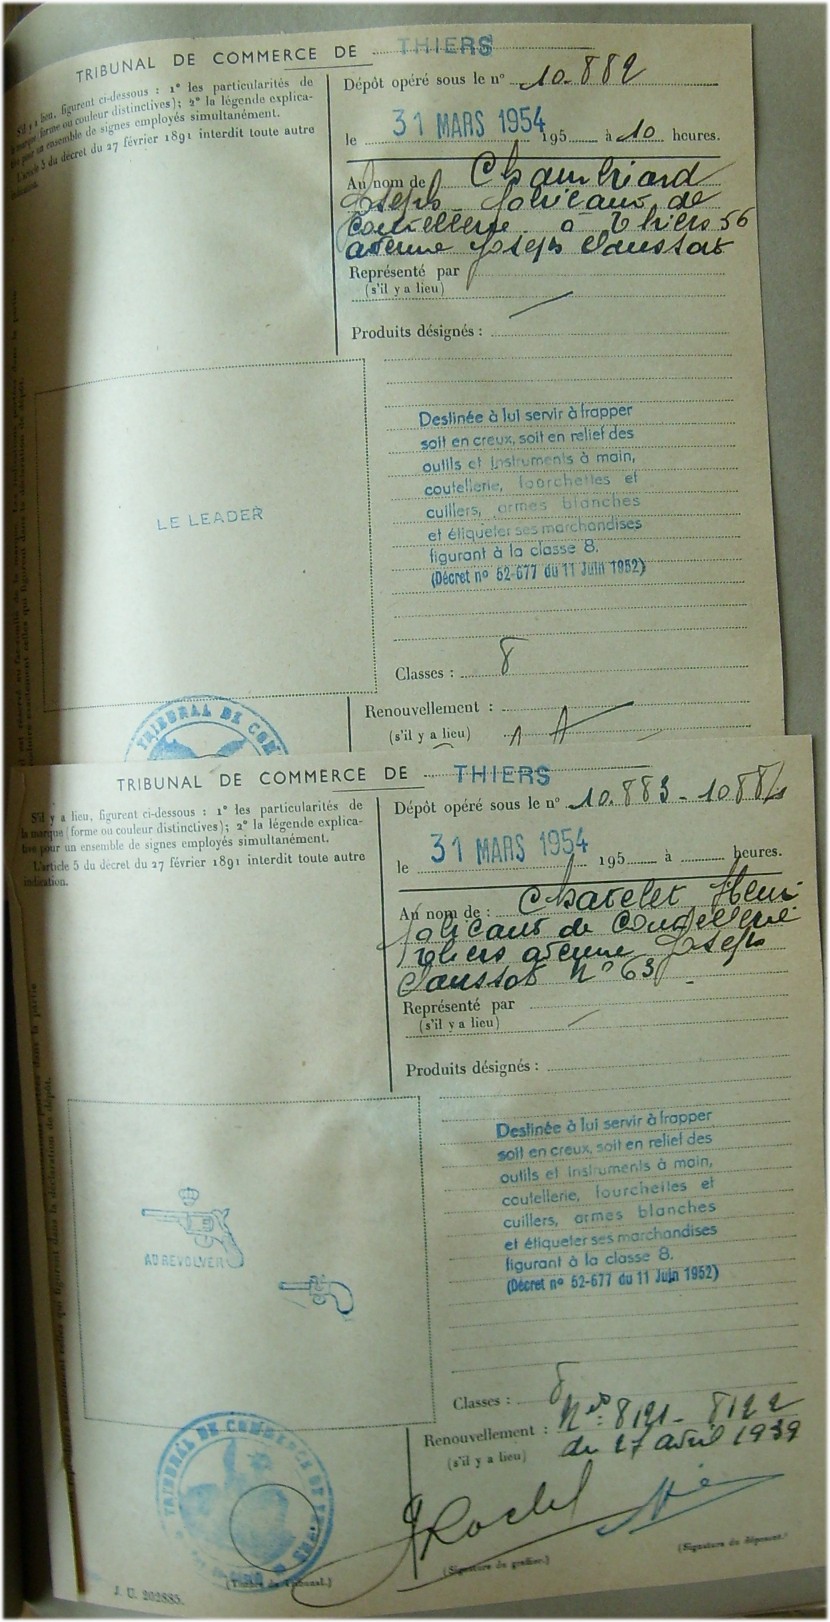 TRIBUNAL DE COMMERCE DE THIERS
S'il y a lieu, figurent ci-dessous : 1° les particularités de
la marque (forme ou couleur distinctives); 2° la légende explica-
tive pour un ensemble de signes employés simultanément.
L'article 5 du décret du 27 février 1891 interdit toute autre
indication.
Dépôt opéré sous le n° 10.882
le 31 MARS 1954 195 à 10 heures.
Au nom de Chambriard
Joseph fabricant de
Coutellerie à Thiers 56
avenue Joseph Claussat
Représenté par
(s'il y a lieu)
Produits désignés :
LE LEADER
Destinée à lui servir à frapper
soit en creux, soit en relief des
outils et instruments à main,
coutellerie, fourchettes et
cuillers, armes blanches
et étiqueter ses marchandises
figurant à la classe 8.
(Décret n° 52-677 du 11 Juin 1952)
Classes : 8
Renouvellement :
(s'il y a lieu)
TRIBUNAL DE COM
TRIBUNAL DE COMMERCE DE THIERS
S'il y a lieu, figurent ci-dessous : 1° les particularités de
la marque (forme ou couleur distinctives); 2° la légende explica-
tive pour un ensemble de signes employés simultanément.
L'article 5 du décret du 27 février 1891 interdit toute autre
indication.
Dépôt opéré sous le n° 10.883 - 10884
le 31 MARS 1954 195 à heures.
Au nom de : Chatelet Henri
fabricant de Coutellerie
Thiers avenue Joseph
Claussat N° 63
Représenté par
(s'il y a lieu)
Produits désignés :
AU REVOLVER
Destinée à lui servir à frapper
soit en creux, soit en relief des
outils et instruments à main,
coutellerie, fourchettes et
cuillers, armes blanches
et étiqueter ses marchandises
figurant à la classe 8.
(Décret n° 52-677 du 11 Juin 1952)
Classes : 8
Renouvellement : Nos : 8121 - 8122
(s'il y a lieu) du 27 avril 1939
TRIBUNAL DE COMMERCE DE THIERS
(Timbre du Tribunal.)
(Signature du greffier.)
(Signature du déposant.)
J. U. 202885.